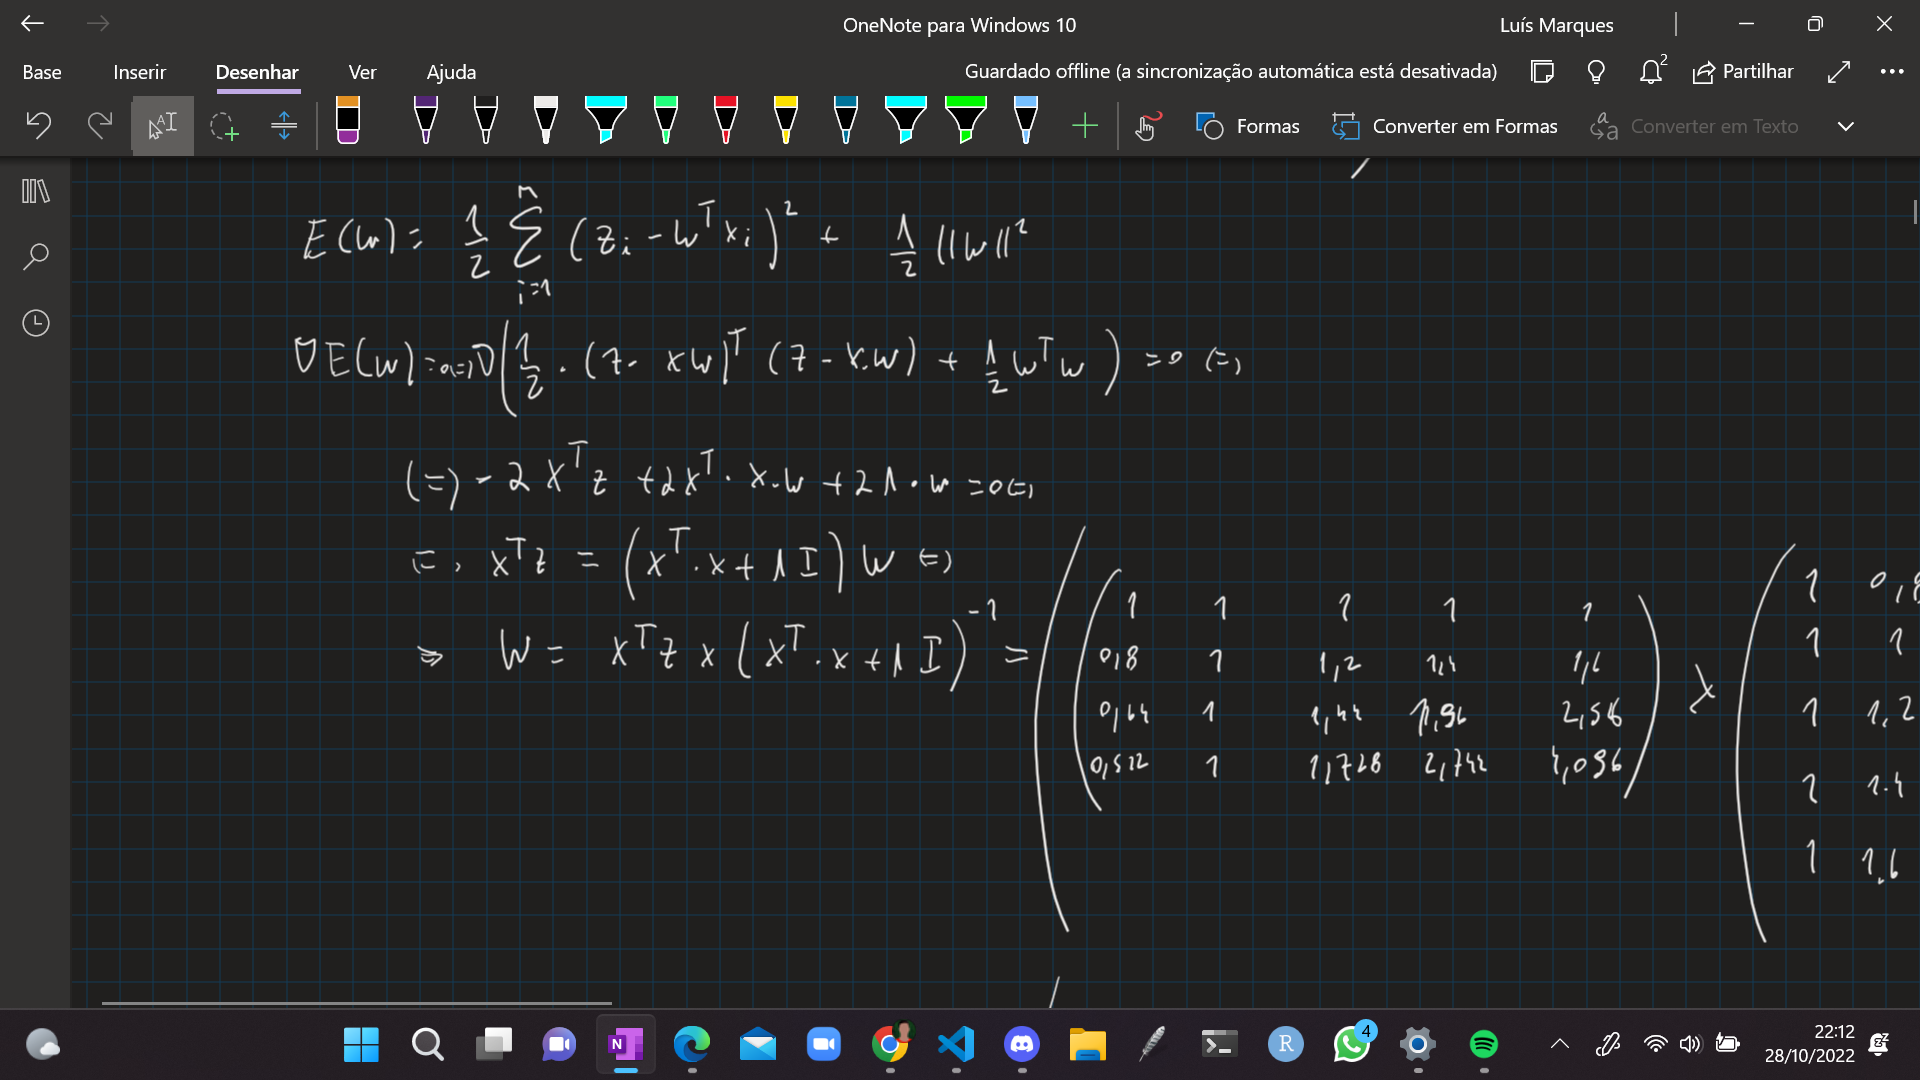 OneNote para Windows 10
Luís Marques
Base Inserir Desenhar Ver Ajuda
Guardado offline (a sincronização automática está desativada)
2
Partilhar
Formas
Converter em Formas
Converter em Texto
E(w) = 1/2 Σ_{i=1}^{n} (z_i - w^T x_i)^2 + λ/2 ||w||^2
∇E(w) = 0 (=) ∇(1/2 · (z - xw)^T (z - x.w) + λ/2 w^T w) = 0 (=)
(=) - 2 x^T z + 2x^T · x.w + 2λ · w = 0 (=)
(=) x^T z = (x^T · x + λI) w (=)
⇒ w = x^T z × (x^T · x + λI)^{-1} =
1 1 1 1 1
0,8 1 1,2 1,4 1,6
0,64 1 1,44 1,96 2,56
0,512 1 1,728 2,744 4,096
×
1 0,8
1 1
1 1,2
1 1.4
1 1.6
4
22:12
28/10/2022